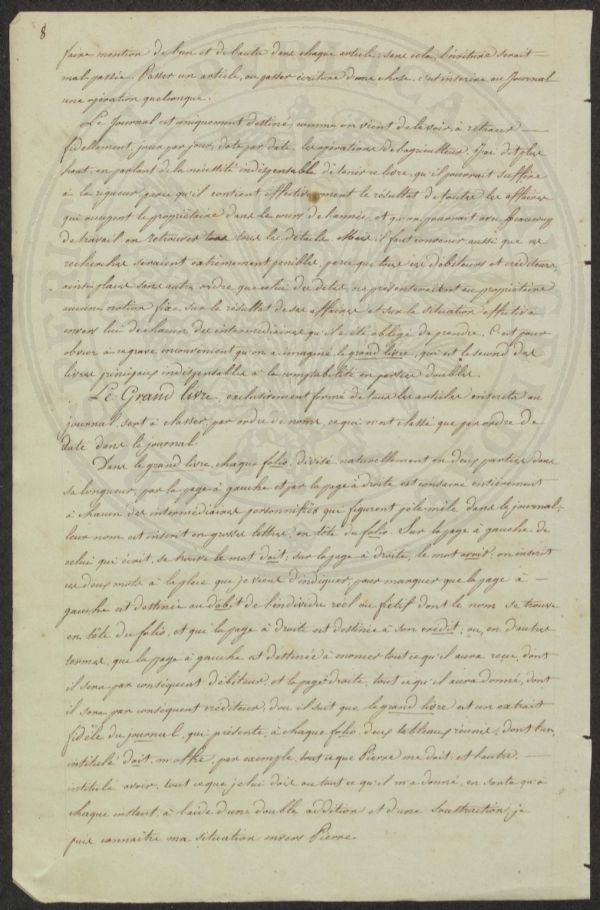 8
faire mention de l'un et de l'autre dans chaque article, sans cela, l'écriture serait
mal passée. Passer un article, ou passer écriture d'une chose, c'est inscrire au Journal
une opération quelconque.
Le Journal est uniquement destiné, comme on vient de le voir, à retracer
fidellement, jour par jour, date par date, les opérations de l'agriculteur. J'ai dit plus
haut, en parlant de la nécessité indispensable de tenir ce livre, qu'il pourrait suffire
à la rigueur, parce qu'il contient effectivement le résultat de toutes les affaires
qui occupent le propriétaire dans le cours de l'année, et qu'on pourrait avec beaucoup
de travail en retrouver tous les détails. Mais il faut convenir aussi que ces
recherches seraient extrêmement penibles, parce que tous ces débiteurs et créditeurs,
ainsi placés sans autre ordre que celui des dates, ne présenteraient au propriétaire
aucune notion fixe sur le résultat de ses affaires et sur la situation effective
envers lui de chacun des intermédiaires qu'il a été obligé de prendre. C'est pour
obvier à ce grave inconvénient qu'on a imaginé le grand livre, qui est le second des
livres principaux indispensables à la comptabilité en parties doubles.
Le Grand livre, exclusivement formé de tous les articles inscrits au
journal, sert à classer, par ordre de noms, ce qui n'est classé que par ordre de
date dans le journal.
Dans le grand livre, chaque folio, divisé naturellement en deux parties dans
sa longueur, par la page à gauche et par la page à droite est consacré entièrement
à chacun des intermédiaires personnifiés qui figurent pêle-mêle dans le journal;
leur nom est inscrit en grosses lettres, en tête du folio. Sur la page à gauche de
celui qui écrit, se trouve le mot doit, sur la page à droite, le mot avoir; on inscrit
ces deux mots à la place que je viens d'indiquer pour marquer que la page à
gauche est destinée au débit de l'individu réel ou fictif dont le nom se trouve
en tête du folio, et que la page à droite est destinée à son credit; ou, en d'autres
termes, que la page à gauche est destinée à énoncer tout ce qu'il aura reçu, dont
il sera par conséquent débiteur, et la page droite, tout ce qu'il aura donné, dont
il sera par conséquent créditeur, d'où il suit que le grand livre est un extrait
fidèle du journal, qui présente, à chaque folio, deux tableaux réunis, dont l'un,
intitulé doit, m'offre, par exemple, tout ce que Pierre me doit, et l'autre
intitulé avoir, tout ce que je lui dois ou tout ce qu'il m'a donné, en sorte qu'à
chaque instant, à l'aide d'une double addition et d'une soustraction, je
puis connaître ma situation envers Pierre.